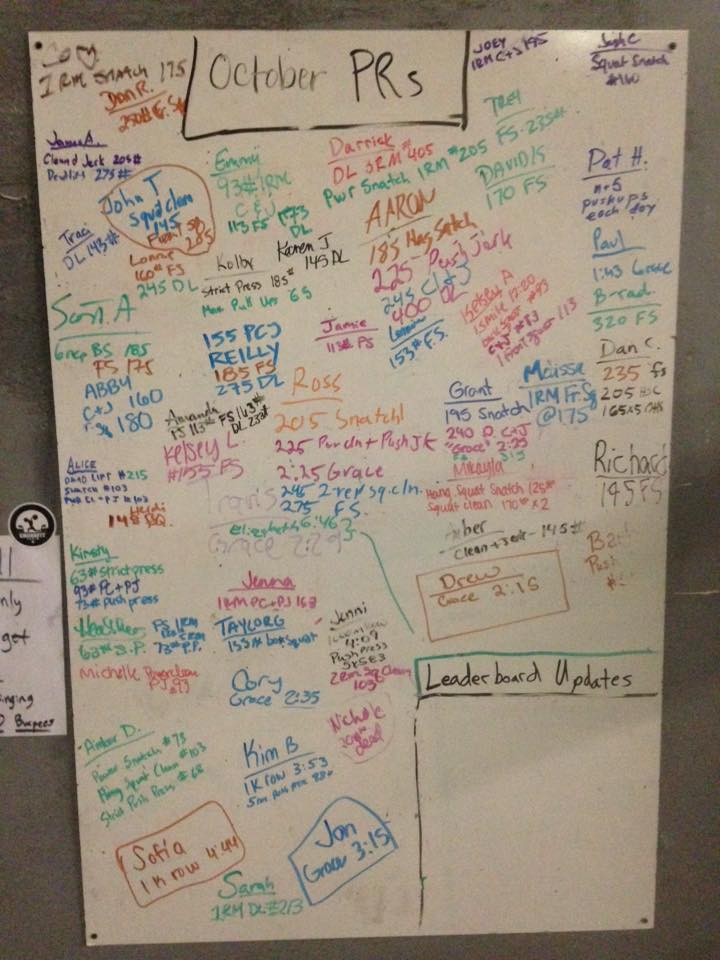 October PRs
Cory
1RM SNATCH 175
Dan R.
250# Fr. Sq
JOEY
1RM C+J 195
Josh C
Squat Snatch
#160
James A.
Clean & Jerk 205#
Deadlift 275#
John T
Squat clean
145
Front Sq
205
Traci
DL 143#
Lonnie
160# FS
245 DL
Emmy
93# 1RM
C & J
113 FS 173
DL
Darrick
DL 3RM #405
Pwr Snatch 1RM #205
TREY
FS - 235#
DAVID K
170 FS
Pat H.
pushups
each day
AARON
185 Hang Snatch
225 Push Jerk
245 Cl + J
400 DL
Kolby
Strict Press 185#
Max Pull Ups 65
Karen J
145 DL
Paul
1:43 Grace
B-rad
320 FS
Scott. A
6rep BS 185
FS 175
ABBY
C+J 160
F. Sq 180
155 PCJ
REILLY
185 FS
275 DL
Jamie
113# FS
153# FS.
Kelsey A
C+J #93
1 front squat 113
Dan C.
235 FS
Amanda
FS 143#
DL 233#
Kelsey L.
#155 FS
Ross
205 Snatch!
225 Pwr Cln + Push Jk
2:25 Grace
245 2 rep sq. cln.
275 F.S.
Grant
195 Snatch
240 C+J
"Grace" 2:35
Maissa
1RM Fr. Sq
@175
ALICE
DEAD LIFT #215
SNATCH #103
PWR CL + PJ #103
Heidi
148 FSQ
Mikayla
Hang Squat Snatch 125#
Squat clean 170# x2
Richard
145 FS
Travis
Grace 2:29
Elizabeth 6:46
Amber
Clean + Jerk - 145#
Drew
Grace 2:15
Kirsty
63# strict press
93# PC + PJ
73# push press
Jenna
1RM PC+PJ 163
Heather
63# S.P.
73# P.P.
TAYLOR G
133# box squat
Jenni
4:09
Push press
5x5 83
2Rm Sq Clean
103#
Michelle Power clean
#93
Cory
Grace 2:35
Nichole
dead
Leaderboard Updates
Amber D.
Power Snatch #73
Hang Squat Clean #103
Strict Push Press #68
Kim B
1K row 3:53
Sofia
1K row 4:44
Jon
Grace 3:15
Sarah
1RM DL #213
nly
get
nging
Burpees